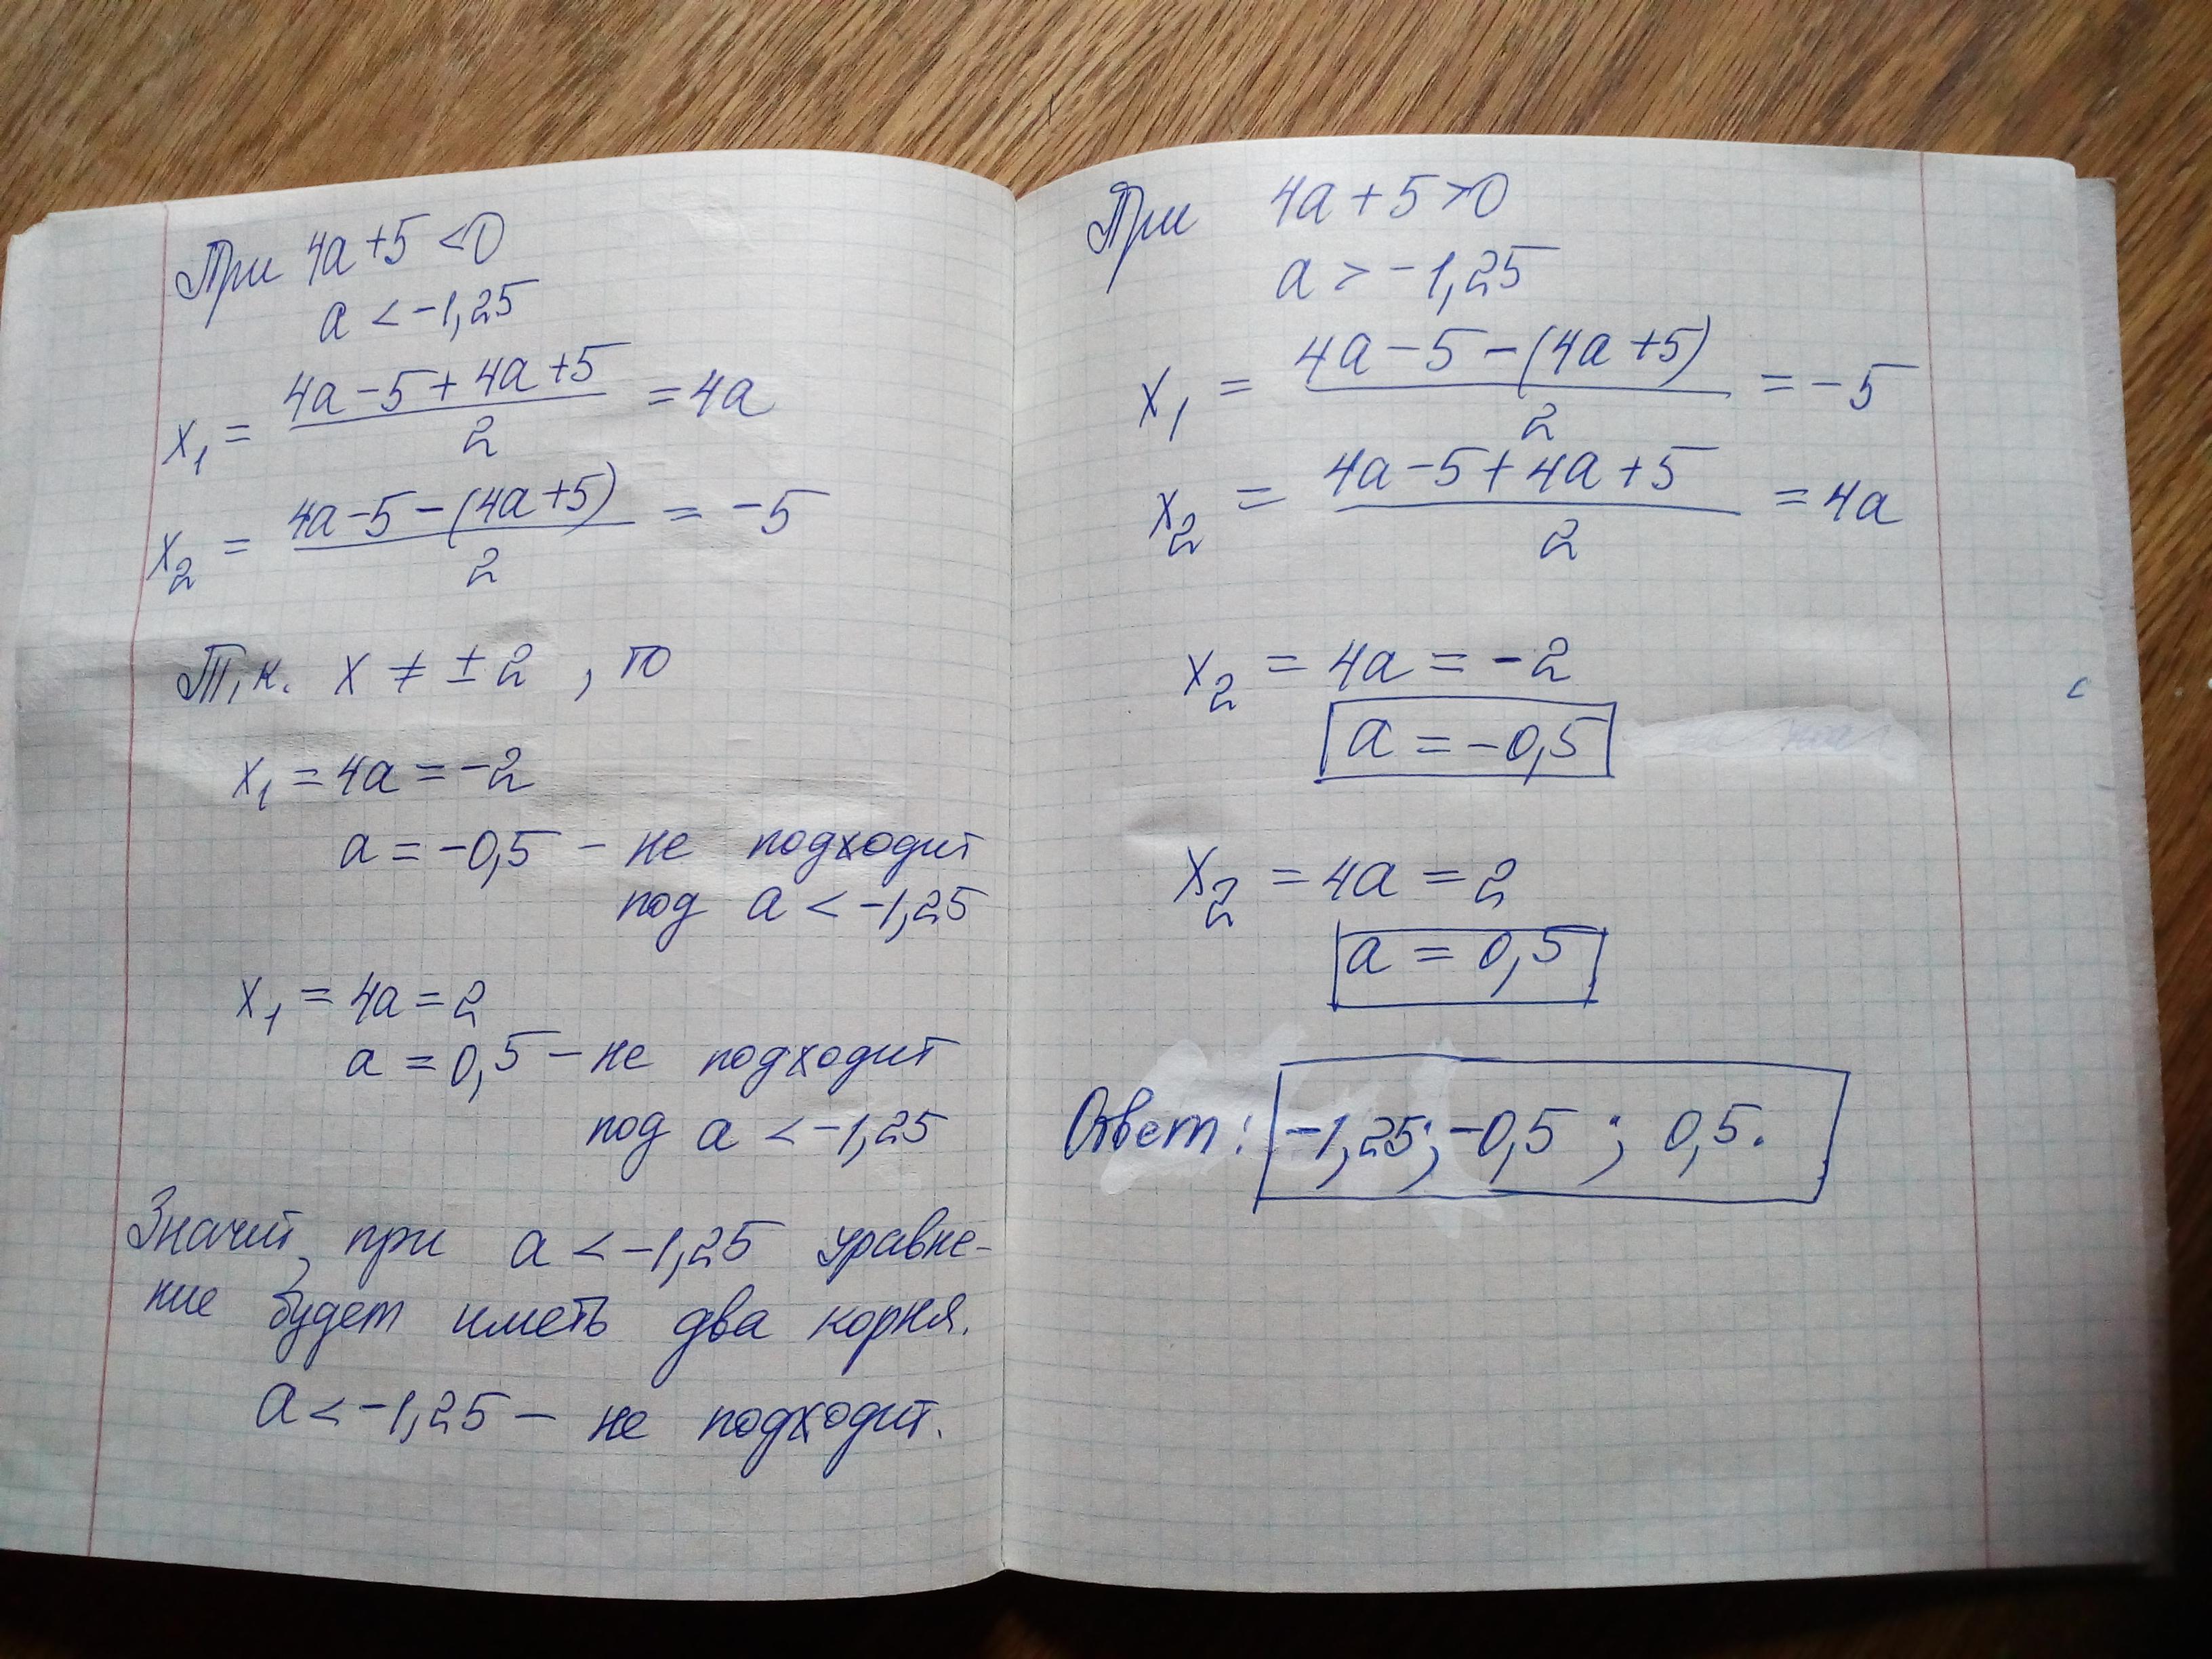 При 4a+5<0
a < -1,25
x₁ = (4a-5+4a+5)/2 = 4a
x₂ = (4a-5-(4a+5))/2 = -5
Т.к. x ≠ ±2, то
x₁ = 4a = -2
a = -0,5 – не подходит
под a < -1,25
x₁ = 4a = 2
a = 0,5 – не подходит
под a < -1,25
Значит, при a < -1,25 уравне-
ние будет иметь два корня.
a < -1,25 – не подходит.
При 4a+5>0
a > -1,25
x₁ = (4a-5-(4a+5))/2 = -5
x₂ = (4a-5+4a+5)/2 = 4a
x₂ = 4a = -2
a = -0,5
x₂ = 4a = 2
a = 0,5
Ответ: -1,25; -0,5; 0,5.